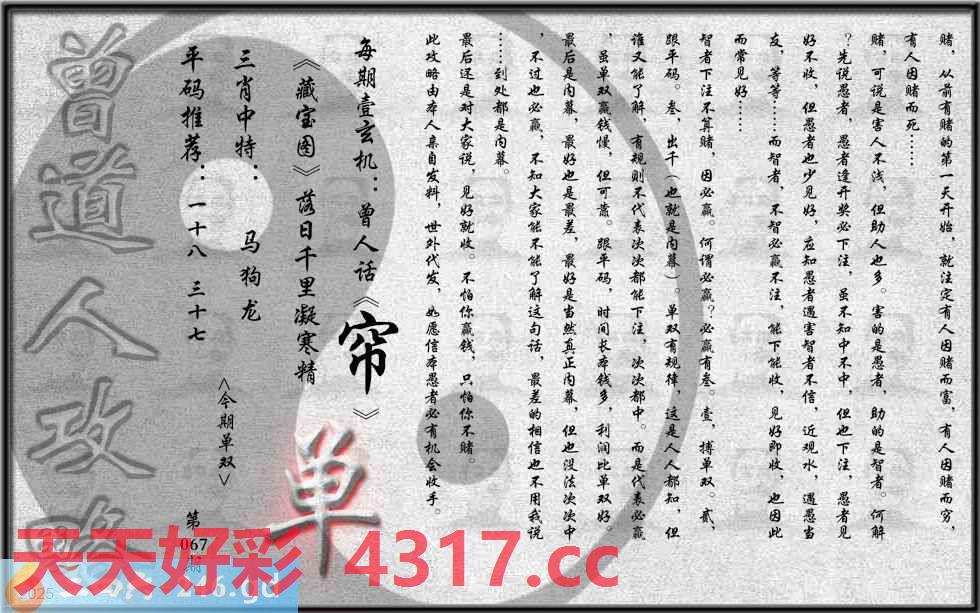 赌，从前有赌的第一天开始，就注定有人因赌而富，有人因赌而穷，
有人因赌而死……
赌，可说是害人不浅，但助人也多。害的是愚者，助的是智者。何解
？先说愚者，愚者逢开奖必下注，虽不知中不中，但也下注，愚者见
好不收，但愚者也少见好，应知愚者遇害智者不信，近观水，遇愚当
友，等等……而智者，不智必赢不注，能下能收，见好即收，也因此
而常见好……
智者下注不算赌，因必赢。何谓必赢？必赢有叁。壹，搏单双。贰，
跟平码。叁，出千（也就是内幕）。单双有规律，这是人人都知，但
谁又能了解，有规则不代表次次都能下注，次次都中。而是代表必赢
，虽单双赢钱慢，但可靠。跟平码，时间长本钱多，利润比单双好。
最后是内幕，最好也是最差，最好是当然真正内幕，但也没法次次中
，不过也必赢，不知大家能不能了解这句话，最差的相信也不用我说
……到处都是内幕。
最后还是对大家说，见好就收。不怕你赢钱，只怕你不赌。
此攻略由本人亲自发料，世外代发，如愿信本愚者必有机会收手。
每期壹玄机：曾人话《帘》
《藏宝图》落日千里凝寒精
三肖中特：马狗龙
平码推荐：一十八 三十七
<今期单双>
单
第
067
期
曾道人攻略
天天好彩 4317.cc
2025
246.gd